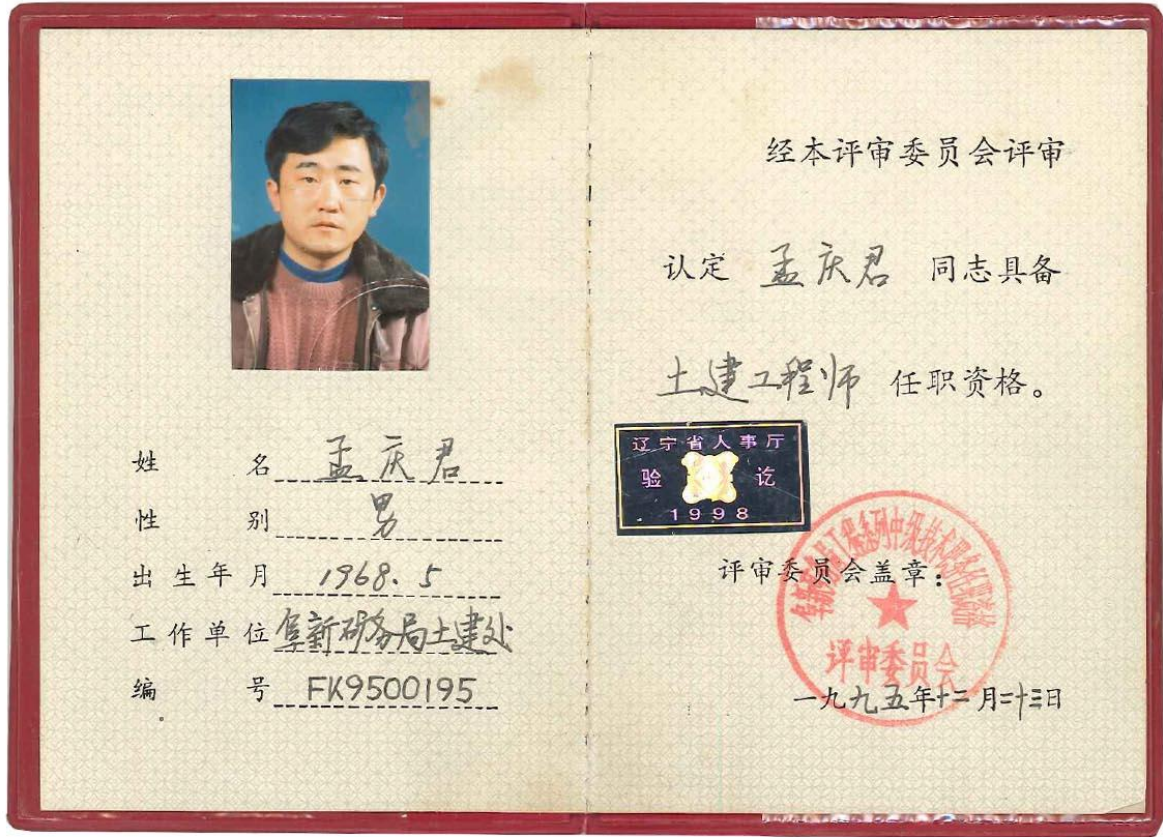 姓名 孟庆君
性别 男
出生年月 1968.5
工作单位 阜新矿务局土建处
编号 FK9500195
经本评审委员会评审
认定 孟庆君 同志具备
土建工程师 任职资格。
辽宁省人事厅
验讫
1998
评审委员会盖章:
阜新矿务局工程系列中级技术职务任职资格
评审委员会
一九九五年十二月二十三日